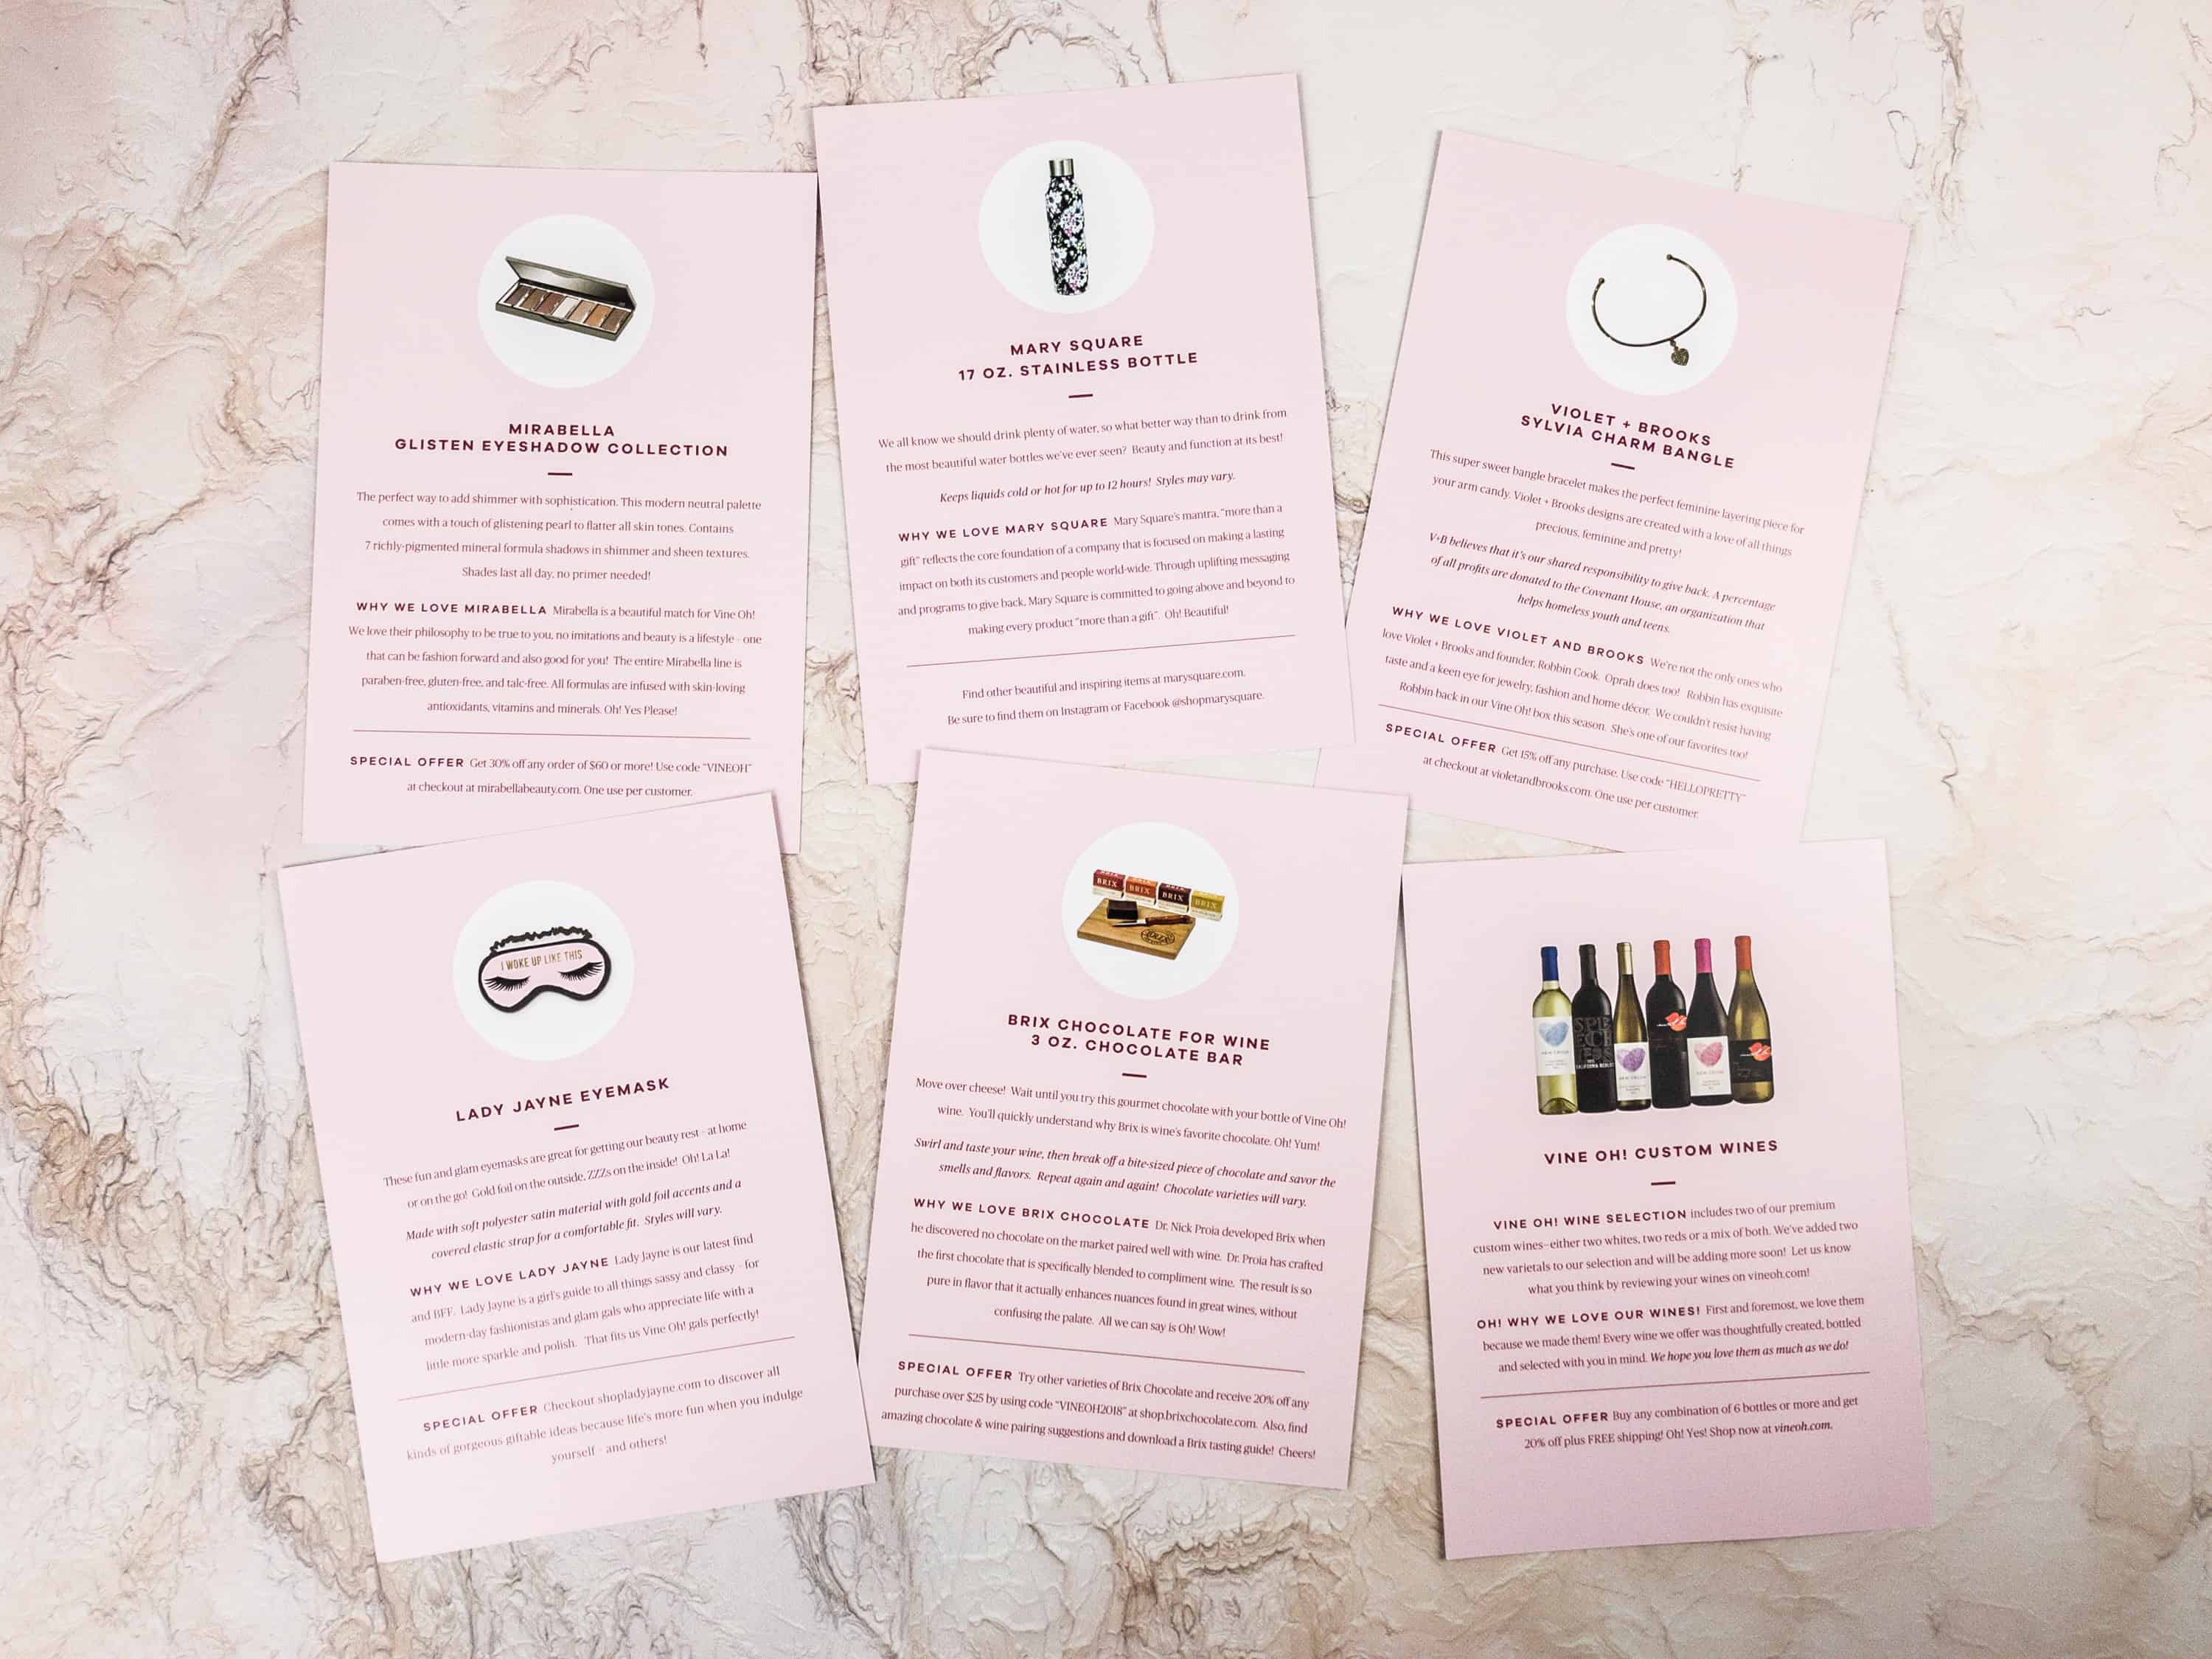 MIRABELLA
GLISTEN EYESHADOW COLLECTION
The perfect way to add shimmer with sophistication. This modern neutral palette
comes with a touch of glistening pearl to flatter all skin tones. Contains
7 richly-pigmented mineral formula shadows in shimmer and sheen textures.
Shades last all day, no primer needed!
WHY WE LOVE MIRABELLA Mirabella is a beautiful match for Vine Oh!
We love their philosophy to be true to you, no imitations and beauty is a lifestyle - one
that can be fashion forward and also good for you! The entire Mirabella line is
paraben-free, gluten-free, and talc-free. All formulas are infused with skin-loving
antioxidants, vitamins and minerals. Oh! Yes Please!
SPECIAL OFFER Get 30% off any order of $60 or more! Use code "VINEOH"
at checkout at mirabellabeauty.com. One use per customer.
MARY SQUARE
17 OZ. STAINLESS BOTTLE
We all know we should drink plenty of water, so what better way than to drink from
the most beautiful water bottles we've ever seen? Beauty and function at its best!
Keeps liquids cold or hot for up to 12 hours! Styles may vary.
WHY WE LOVE MARY SQUARE Mary Square's mantra, "more than a
gift" reflects the core foundation of a company that is focused on making a lasting
impact on both its customers and people world-wide. Through uplifting messaging
and programs to give back, Mary Square is committed to going above and beyond to
making every product "more than a gift". Oh! Beautiful!
Find other beautiful and inspiring items at marysquare.com.
Be sure to find them on Instagram or Facebook @shopmarysquare.
VIOLET + BROOKS
SYLVIA CHARM BANGLE
This super sweet bangle bracelet makes the perfect feminine layering piece for
your arm candy. Violet + Brooks designs are created with a love of all things
precious, feminine and pretty!
V+B believes that it's our shared responsibility to give back. A percentage
of all profits are donated to the Covenant House, an organization that
helps homeless youth and teens.
WHY WE LOVE VIOLET AND BROOKS We're not the only ones who
love Violet + Brooks and founder, Robbin Cook. Oprah does too! Robbin has exquisite
taste and a keen eye for jewelry, fashion and home décor. We couldn't resist having
Robbin back in our Vine Oh! box this season. She's one of our favorites too!
SPECIAL OFFER Get 15% off any purchase. Use code "HELLOPRETTY"
at checkout at violetandbrooks.com. One use per customer.
I WOKE UP LIKE THIS
LADY JAYNE EYEMASK
These fun and glam eyemasks are great for getting our beauty rest - at home
or on the go! Gold foil on the outside, ZZZs on the inside! Oh! La La!
Made with soft polyester satin material with gold foil accents and a
covered elastic strap for a comfortable fit. Styles will vary.
WHY WE LOVE LADY JAYNE Lady Jayne is our latest find
and BFF. Lady Jayne is a girl's guide to all things sassy and classy - for
modern-day fashionistas and glam gals who appreciate life with a
little more sparkle and polish. That fits us Vine Oh! gals perfectly!
SPECIAL OFFER Checkout shopladyjayne.com to discover all
kinds of gorgeous giftable ideas because life's more fun when you indulge
yourself - and others!
BRIX BRIX BRIX BRIX
BRIX CHOCOLATE FOR WINE
3 OZ. CHOCOLATE BAR
Move over cheese! Wait until you try this gourmet chocolate with your bottle of Vine Oh!
wine. You'll quickly understand why Brix is wine's favorite chocolate. Oh! Yum!
Swirl and taste your wine, then break off a bite-sized piece of chocolate and savor the
smells and flavors. Repeat again and again! Chocolate varieties will vary.
WHY WE LOVE BRIX CHOCOLATE Dr. Nick Proia developed Brix when
he discovered no chocolate on the market paired well with wine. Dr. Proia has crafted
the first chocolate that is specifically blended to compliment wine. The result is so
pure in flavor that it actually enhances nuances found in great wines, without
confusing the palate. All we can say is Oh! Wow!
SPECIAL OFFER Try other varieties of Brix Chocolate and receive 20% off any
purchase over $25 by using code "VINEOH2018" at shop.brixchocolate.com. Also, find
amazing chocolate & wine pairing suggestions and download a Brix tasting guide! Cheers!
VINE OH! CUSTOM WINES
VINE OH! WINE SELECTION includes two of our premium
custom wines--either two whites, two reds or a mix of both. We've added two
new varietals to our selection and will be adding more soon! Let us know
what you think by reviewing your wines on vineoh.com!
OH! WHY WE LOVE OUR WINES! First and foremost, we love them
because we made them! Every wine we offer was thoughtfully created, bottled
and selected with you in mind. We hope you love them as much as we do!
SPECIAL OFFER Buy any combination of 6 bottles or more and get
20% off plus FREE shipping! Oh! Yes! Shop now at vineoh.com.